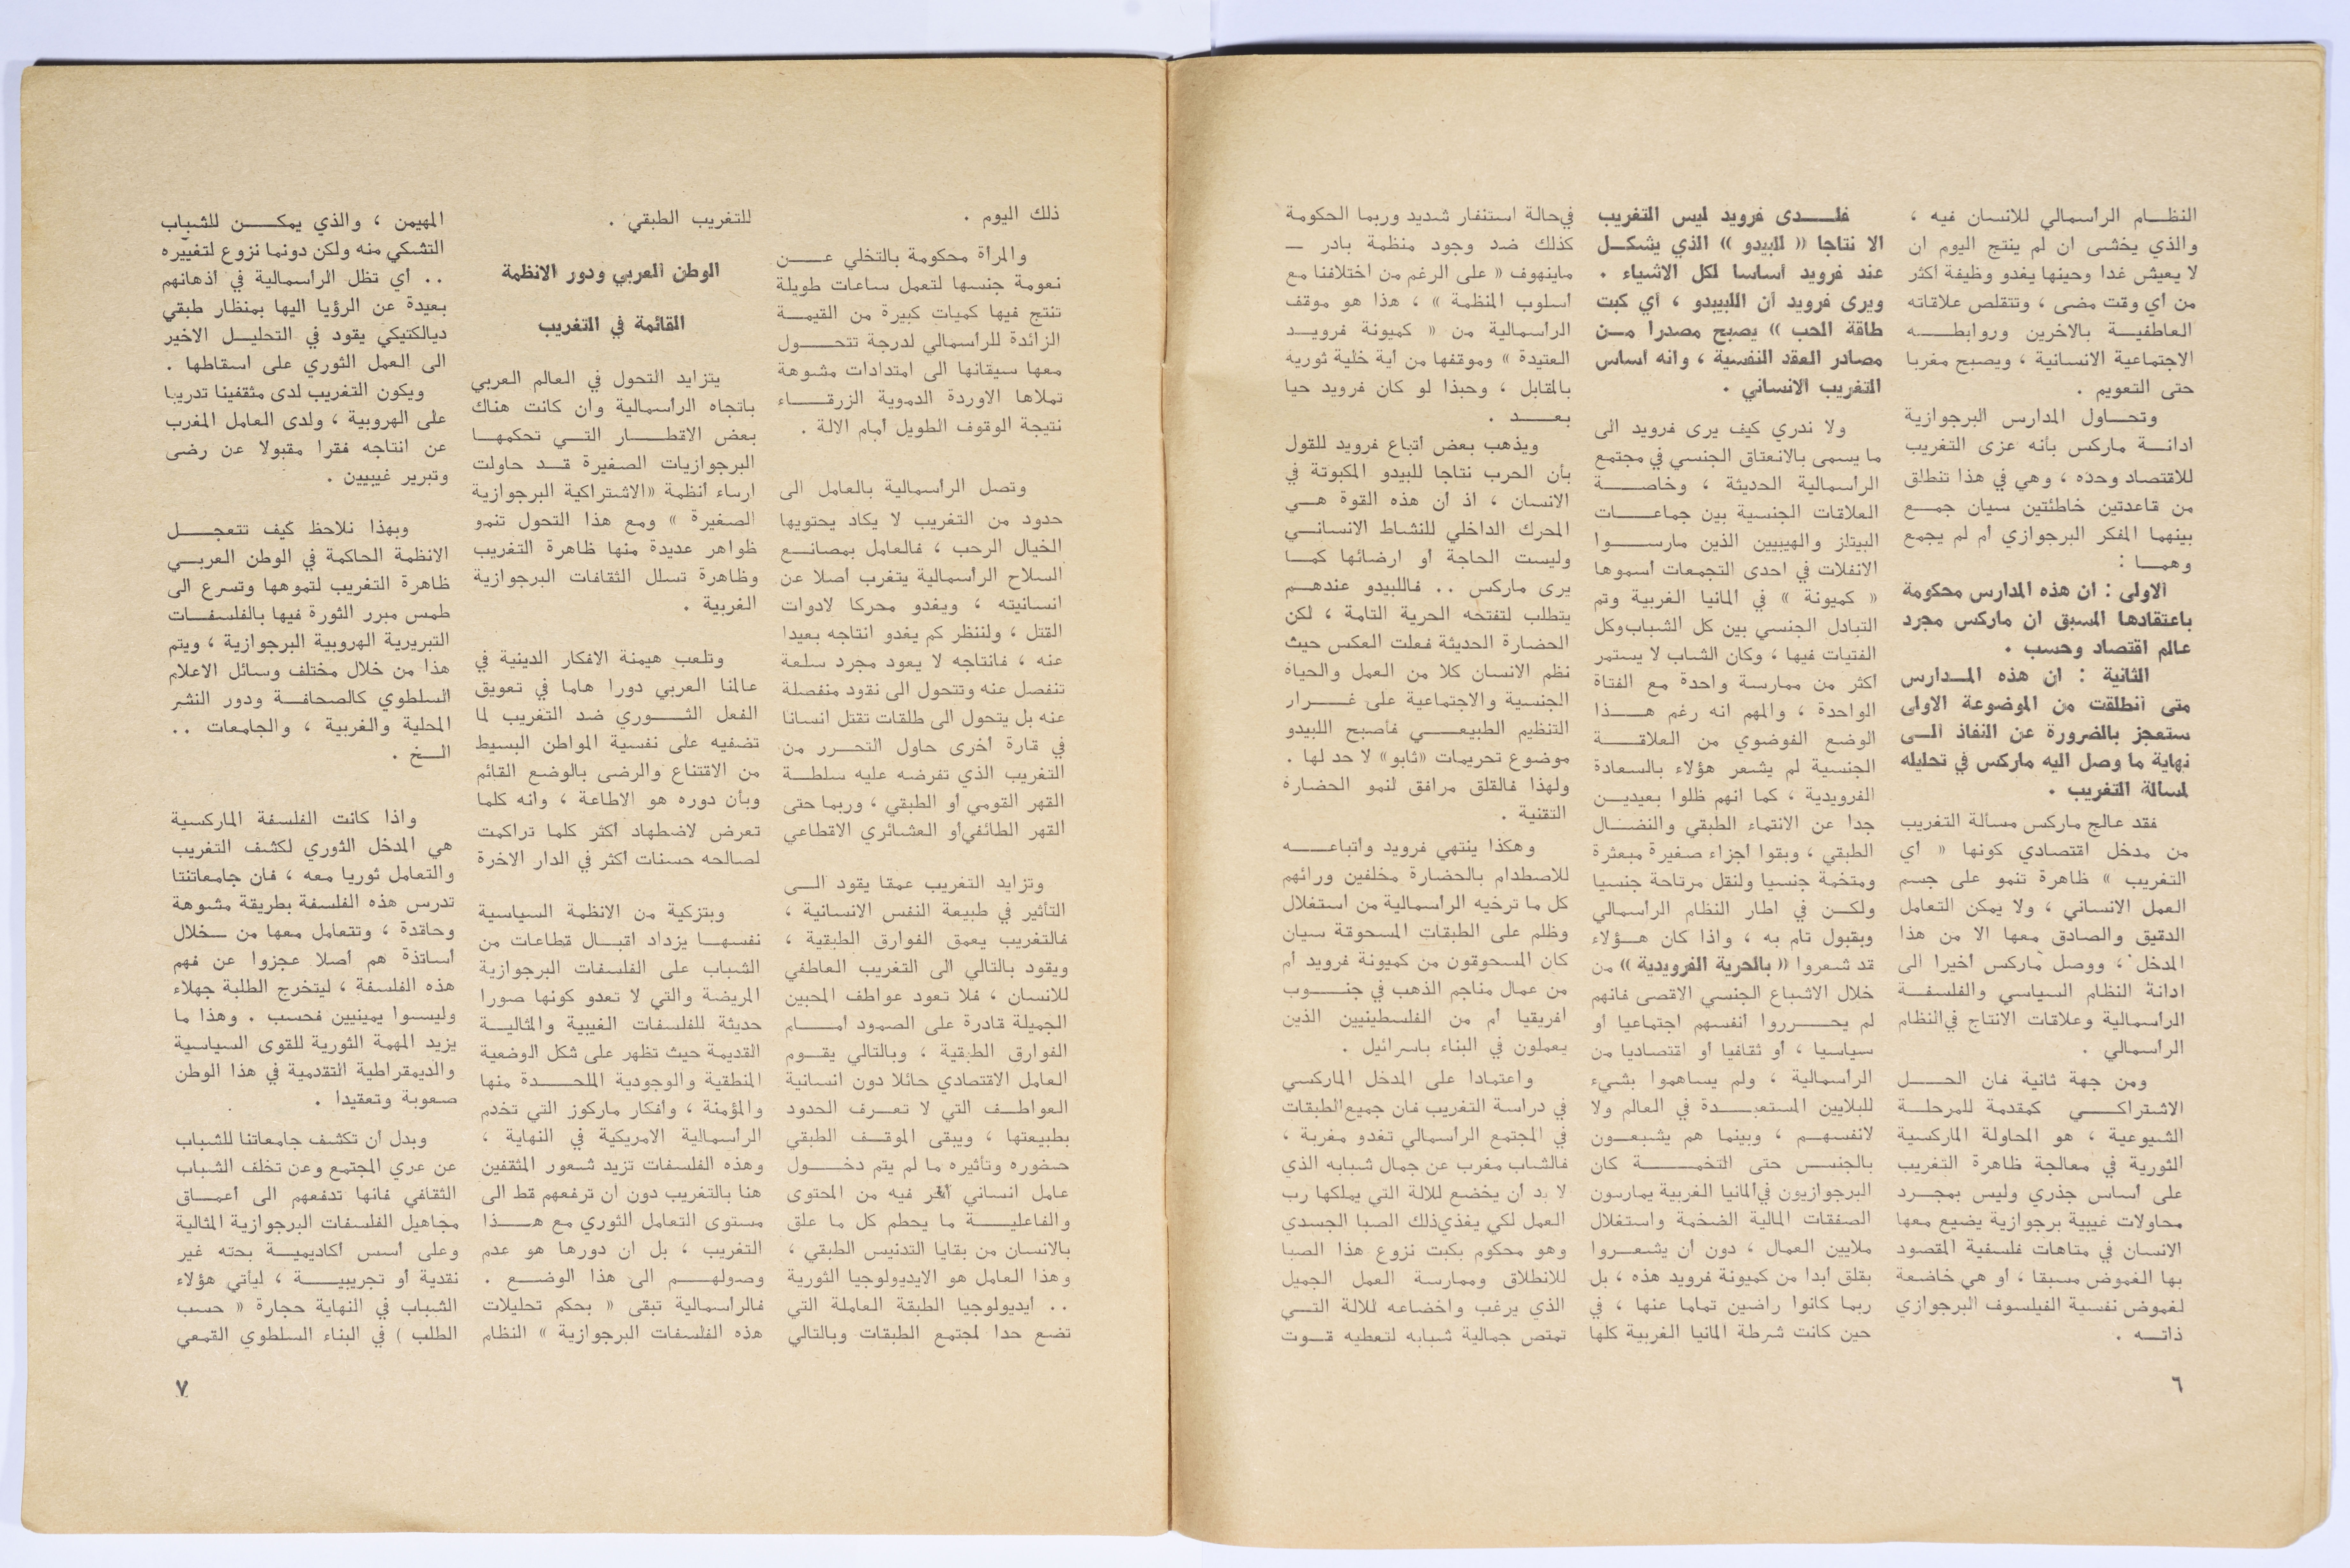 النظام الرأسمالي للانسان فيه ،
والذي يخشى ان لم ينتج اليوم ان
لا يعيش غدا وحينها يغدو وظيفة اكثر
من أي وقت مضى ، وتتقلص علاقاته
العاطفية بالاخرين وروابطه
الاجتماعية الانسانية ، ويصبح مغربا
حتى التعويم .
وتحاول المدارس البرجوازية
ادانة ماركس بأنه عزى التغريب
للاقتصاد وحده ، وهي في هذا تنطلق
من قاعدتين خاطئتين سيان جمع
بينهما المفكر البرجوازي أم لم يجمع
وهما :
الاولى : ان هذه المدارس محكومة
باعتقادها المسبق ان ماركس مجرد
عالم اقتصاد وحسب .
الثانية : ان هذه المدارس
متى أنطلقت من الموضوعة الاولى
ستعجز بالضرورة عن النفاذ الى
نهاية ما وصل اليه ماركس في تحليله
لمسالة التغريب .
فقد عالج ماركس مسألة التغريب
من مدخل اقتصادي كونها « أي
التغريب » ظاهرة تنمو على جسم
العمل الانساني ، ولا يمكن التعامل
الدقيق والصادق معها الا من هذا
المدخل ، ووصل ماركس أخيرا الى
ادانة النظام السياسي والفلسفة
الرأسمالية وعلاقات الانتاج في النظام
الرأسمالي .
ومن جهة ثانية فان الحل
الاشتراكي كمقدمة للمرحلة
الشيوعية ، هو المحاولة الماركسية
الثورية في معالجة ظاهرة التغريب
على أساس جذري وليس بمجرد
محاولات غيبية برجوازية يضيع معها
الانسان في متاهات فلسفية المقصود
بها الغموض مسبقا ، أو هي خاضعة
لغموض نفسية الفيلسوف البرجوازي
ذاته .
فلدى فرويد ليس التغريب
الا نتاجا « للبيدو » الذي يشكل
عند فرويد أساسا لكل الاشياء .
ويرى فرويد أن اللبيبدو ، أي كبت
طاقة الحب » يصبح مصدرا من
مصادر العقد النفسية ، وانه أساس
التغريب الانساني .
ولا ندري كيف يرى فرويد الى
ما يسمى بالانعتاق الجنسي في مجتمع
الرأسمالية الحديثة ، وخاصة
العلاقات الجنسية بين جماعات
البيتلز والهيبيين الذين مارسوا
الانفلات في احدى التجمعات أسموها
« كميونة » في المانيا الغربية وتم
التبادل الجنسي بين كل الشباب وكل
الفتيات فيها ، وكان الشاب لا يستمر
أكثر من ممارسة واحدة مع الفتاة
الواحدة ، والمهم انه رغم هذا
الوضع الفوضوي من العلاقة
الجنسية لم يشعر هؤلاء بالسعادة
الفرويدية ، كما انهم ظلوا بعيدين
جدا عن الانتماء الطبقي والنضال
الطبقي ، وبقوا أجزاء صغيرة مبعثرة
ومتخمة جنسيا ولنقل مرتاحة جنسيا
ولكن في اطار النظام الرأسمالي
وبقبول تام به ، واذا كان هؤلاء
قد شعروا « بالحرية الفرويدية » من
خلال الاشباع الجنسي الاقصى فانهم
لم يحرروا أنفسهم اجتماعيا أو
سياسيا ، أو ثقافيا أو اقتصاديا من
الرأسمالية ، ولم يساهموا بشيء
للبلايين المستعبدة في العالم ولا
لانفسهم ، وبينما هم يشبعون
بالجنس حتى التخمة كان
البرجوازيون في المانيا الغربية يمارسون
الصفقات المالية الضخمة واستغلال
ملايين العمال ، دون أن يشعروا
بقلق أبدا من كميونة فرويد هذه ، بل
ربما كانوا راضين تماما عنها ، في
حين كانت شرطة المانيا الغربية كلها
في حالة استنفار شديد وربما الحكومة
كذلك ضد وجود منظمة بادر ـ
ماينهوف « على الرغم من اختلافنا مع
أسلوب المنظمة » ، هذا هو موقف
الرأسمالية من « كميونة فرويد
العتيدة » وموقفها من أية خلية ثورية
بالمقابل ، وحبذا لو كان فرويد حيا
بعد .
ويذهب بعض أتباع فرويد للقول
بأن الحرب نتاجا للبيدو المكبوتة في
الانسان ، اذ أن هذه القوة هي
المحرك الداخلي للنشاط الانساني
وليست الحاجة أو ارضائها كما
يرى ماركس .. فاللبيدو عندهم
يتطلب لتفتحه الحرية التامة ، لكن
الحضارة الحديثة فعلت العكس حيث
نظم الانسان كلا من العمل والحياة
الجنسية والاجتماعية على غرار
التنظيم الطبيعي فأصبح اللبيدو
موضوع تحريمات «ثابو» لا حد لها .
ولهذا فالقلق مرافق لنمو الحضارة
التقنية .
وهكذا ينتهي فرويد واتباعه
للاصطدام بالحضارة مخلفين ورائهم
كل ما ترخيه الرأسمالية من استغلال
وظلم على الطبقات المسحوقة سيان
كان المسحوقون من كميونة فرويد أم
من عمال مناجم الذهب في جنوب
أفريقيا أم من الفلسطينيين الذين
يعملون في البناء باسرائيل .
واعتمادا على المدخل الماركسي
في دراسة التغريب فان جميع الطبقات
في المجتمع الرأسمالي تغدو مغربة ،
فالشاب مغرب عن جمال شبابه الذي
لا بد أن يخضع للالة التي يملكها رب
العمل لكي يغذي ذلك الصبا الجسدي
وهو محكوم بكبت نزوع هذا الصبا
للانطلاق وممارسة العمل الجميل
الذي يرغب واخضاعه للالة التي
تمتص جمالية شبابه لتعطيه قوت
٦
ذلك اليوم .
والمرأة محكومة بالتخلي عن
نعومة جنسها لتعمل ساعات طويلة
تنتج فيها كميات كبيرة من القيمة
الزائدة للرأسمالي لدرجة تتحول
معها سيقانها الى امتدادات مشوهة
تملاها الاوردة الدموية الزرقاء
نتيجة الوقوف الطويل أمام الالة .
وتصل الرأسمالية بالعامل الى
حدود من التغريب لا يكاد يحتويها
الخيال الرحب ، فالعامل بمصانع
السلاح الرأسمالية يتغرب أصلا عن
انسانيته ، ويغدو محركا لادوات
القتل ، ولننظر كم يغدو انتاجه بعيدا
عنه ، فانتاجه لا يعود مجرد سلعة
تنفصل عنه وتتحول الى نقود منفصلة
عنه بل يتحول الى طلقات تقتل انسانا
في قارة أخرى حاول التحرر من
التغريب الذي تفرضه عليه سلطة
القهر القومي أو الطبقي ، وربما حتى
القهر الطائفي أو العشائري الاقطاعي
وتزايد التغريب عمقا يقود الى
التأثير في طبيعة النفس الانسانية ،
فالتغريب يعمق الفوارق الطبقية ،
ويقود بالتالي الى التغريب العاطفي
للانسان ، فلا تعود عواطف المحبين
الجميلة قادرة على الصمود أمام
الفوارق الطبقية ، وبالتالي يقوم
العامل الاقتصادي حائلا دون انسانية
العواطف التي لا تعرف الحدود
بطبيعتها ، ويبقى الموقف الطبقي
حضوره وتأثيره ما لم يتم دخول
عامل انساني آخر فيه من المحتوى
والفاعلية ما يحطم كل ما علق
بالانسان من بقايا التدنيس الطبقي ،
وهذا العامل هو الايديولوجيا الثورية
.. أيديولوجيا الطبقة العاملة التي
تضع حدا لمجتمع الطبقات وبالتالي
للتغريب الطبقي .
الوطن العربي ودور الانظمة
القائمة في التغريب
يتزايد التحول في العالم العربي
باتجاه الرأسمالية وان كانت هناك
بعض الاقطار التي تحكمها
البرجوازيات الصغيرة قد حاولت
ارساء أنظمة «الاشتراكية البرجوازية
الصغيرة » ومع هذا التحول تنمو
ظواهر عديدة منها ظاهرة التغريب
وظاهرة تسلل الثقافات البرجوازية
الغربية .
وتلعب هيمنة الافكار الدينية في
عالمنا العربي دورا هاما في تعويق
الفعل الثوري ضد التغريب لما
تضفيه على نفسية المواطن البسيط
من الاقتناع والرضى بالوضع القائم
وبأن دوره هو الاطاعة ، وانه كلما
تعرض لاضطهاد أكثر كلما تراكمت
لصالحه حسنات أكثر في الدار الاخرة
وبتزكية من الانظمة السياسية
نفسها يزداد اقبال قطاعات من
الشباب على الفلسفات البرجوازية
المريضة والتي لا تعدو كونها صورا
حديثة للفلسفات الغيبية والمثالية
القديمة حيث تظهر على شكل الوضعية
المنطقية والوجودية الملحدة منها
والمؤمنة ، وأفكار ماركوز التي تخدم
الرأسمالية الامريكية في النهاية ،
وهذه الفلسفات تزيد شعور المثقفين
هنا بالتغريب دون أن ترفعهم قط الى
مستوى التعامل الثوري مع هذا
التغريب ، بل ان دورها هو عدم
وصولهم الى هذا الوضع .
فالرأسمالية تبقى « بحكم تحليلات
هذه الفلسفات البرجوازية » النظام
المهيمن ، والذي يمكن للشباب
التشكي منه ولكن دونما نزوع لتغيّره
.. أي تظل الرأسمالية في أذهانهم
بعيدة عن الرؤيا اليها بمنظار طبقي
ديالكتيكي يقود في التحليل الاخير
الى العمل الثوري على اسقاطها .
ويكون التغريب لدى مثقفينا تدريبا
على الهروبية ، ولدى العامل المغرب
عن انتاجه فقرا مقبولا عن رضى
وتبرير غيبيين .
وبهذا نلاحظ كيف تتعجل
الانظمة الحاكمة في الوطن العربي
ظاهرة التغريب لتموهها وتسرع الى
طمس مبرر الثورة فيها بالفلسفات
التبريرية الهروبية البرجوازية ، ويتم
هذا من خلال مختلف وسائل الاعلام
السلطوي كالصحافة ودور النشر
المحلية والغربية ، والجامعات ..
الخ .
واذا كانت الفلسفة الماركسية
هي المدخل الثوري لكشف التغريب
والتعامل ثوريا معه ، فان جامعاتنتا
تدرس هذه الفلسفة بطريقة مشوهة
وحاقدة ، وتتعامل معها من خلال
أساتذة هم أصلا عجزوا عن فهم
هذه الفلسفة ، ليتخرج الطلبة جهلاء
وليسوا يمينيين فحسب . وهذا ما
يزيد المهمة الثورية للقوى السياسية
والديمقراطية التقدمية في هذا الوطن
صعوبة وتعقيدا .
وبدل أن تكشف جامعاتنا للشباب
عن عري المجتمع وعن تخلف الشباب
الثقافي فانها تدفعهم الى أعماق
مجاهيل الفلسفات البرجوازية المثالية
وعلى أسس أكاديمية بحته غير
نقدية أو تجريبية ، ليأتي هؤلاء
الشباب في النهاية حجارة « حسب
الطلب ) في البناء السلطوي القمعي
٧